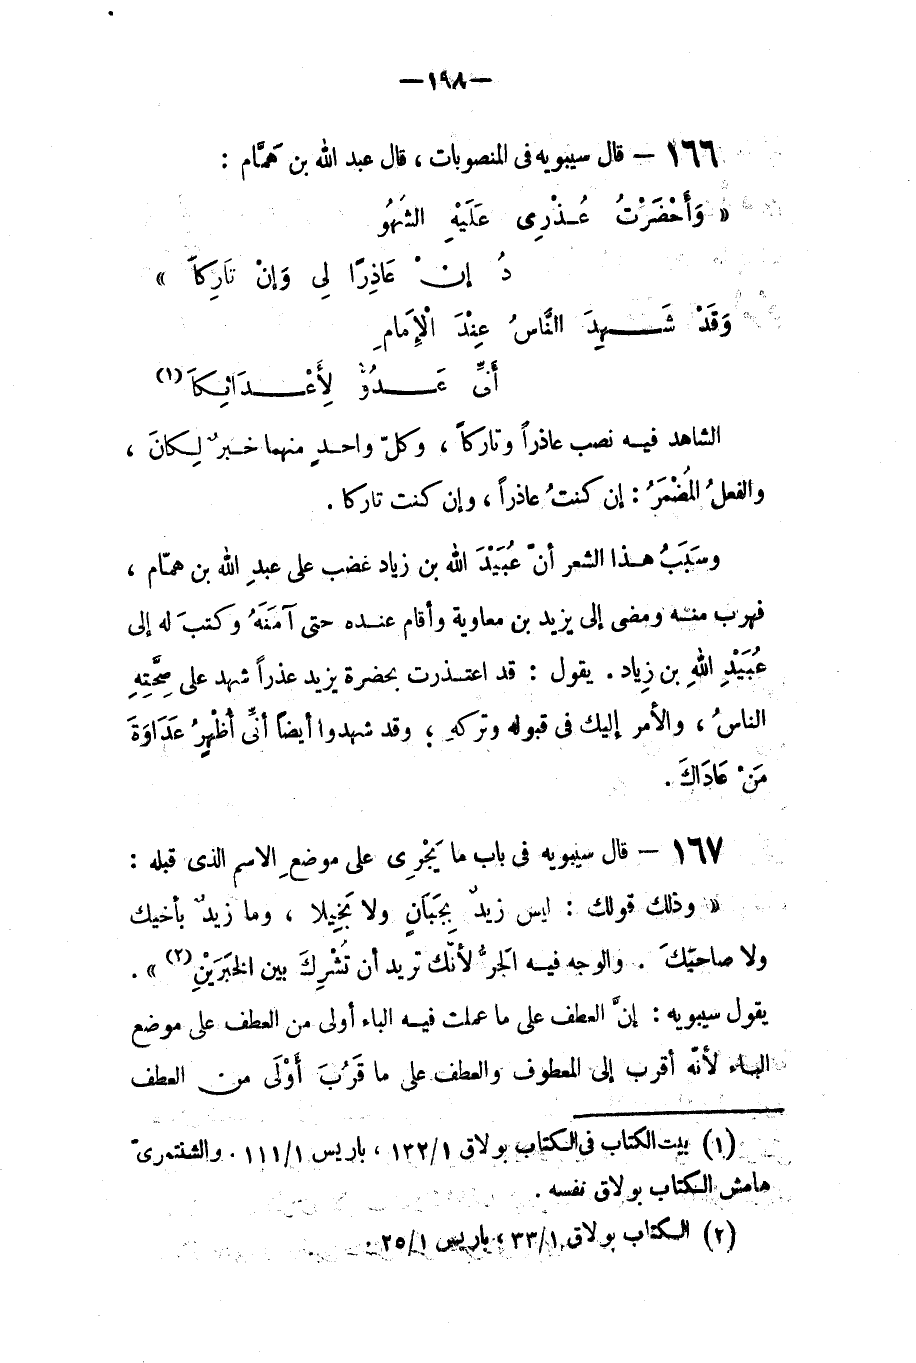 —١٩٨—
١٦٦ — قال سيبويه فى المنصوبات ، قال عبد الله بن هَمَّام :
« وَأَحْضَرْتُ عُـذْرِى عَلَيْهِ الشُّهُو
دُ إنْ عَاذِرًا لِى وَإِنْ تَارِكاً »
وَقَدْ شَـــهِدَ النَّاسُ عِنْدَ الْإِمَامِ
أَنِّى عَـــدُوٌّ لِأَعْـــدَائِـكَا (١)
الشاهد فيـه نصب عاذراً وتاركاً ، وكلّ واحـدٍ منهما خـبرٌ لِـكانَ ،
والفعلُ المُضْمَرُ : إن كنتُ عاذراً ، وإن كنت تاركا .
وسَبَبُ هـذا الشعر أنّ عُبَيْدَ الله بن زياد غضب على عبدِ الله بن همّام ،
فهرب منـه ومضى إلى يزيد بن معاوية وأقام عنـده حتى آمَنَهُ وكتبَ له إلى
عُبَيْدِ اللهِ بن زِياد . يقول : قد اعتـذرت بحضرة يزيد عذراً شهد على صِحَّتِهِ
الناسُ ، والأمر إليك فى قبوله وتركهِ ؛ وقد شهدوا أيضاً أنِّى أُظْهِرُ عَدَاوَةَ
مَنْ عَادَاكَ .
١٦٧ — قال سيبويه فى باب ما يَجْرِى على موضعِ الاسم الذى قبله :
« وذلك قولك : ليس زيدٌ بِجَبَانٍ ولا بَخِيلا ، وما زيدٌ بأخيك
ولا صاحبَكَ . والوجه فيـه الجرُّ لأنّك تريد أن تُشْرِكَ بين الخَبَرَيْنِ (٢) » .
يقول سيبويه : إنَّ العطف على ما عملت فيـه الباء أولى من العطف على موضع
البـاء لأنّه أقرب إلى المعطوف والعطف على ما قَرُبَ أَوْلَى من العطف
(١) بيت الكتاب فى الكتاب بولاق ١/١٣٢ ، باريس ١/١١١ . والشنتمرىّ
هامش الكتاب بولاق نفسه .
(٢) الكتاب بولاق ١/٣٣ ، باريس ١/٢٥ .